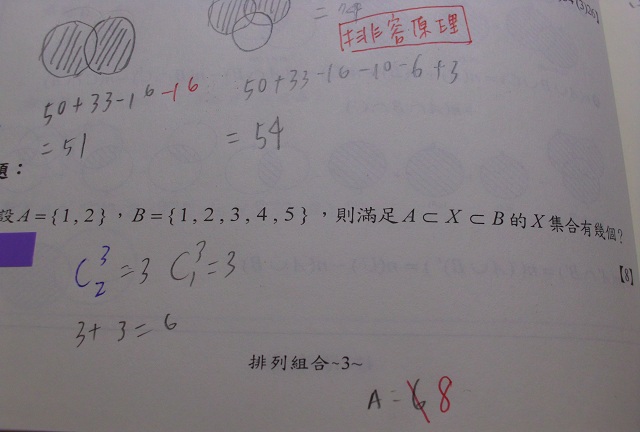 排容原理
50+33-16-16
50+33-16-10-6+3
=51
=54
題：
設A={1,2}，B={1,2,3,4,5}，則滿足A⊂X⊂B的X集合有幾個？
【8】
C³₂=3 C³₁=3
3+3=6
排列組合~3~
A=6 8